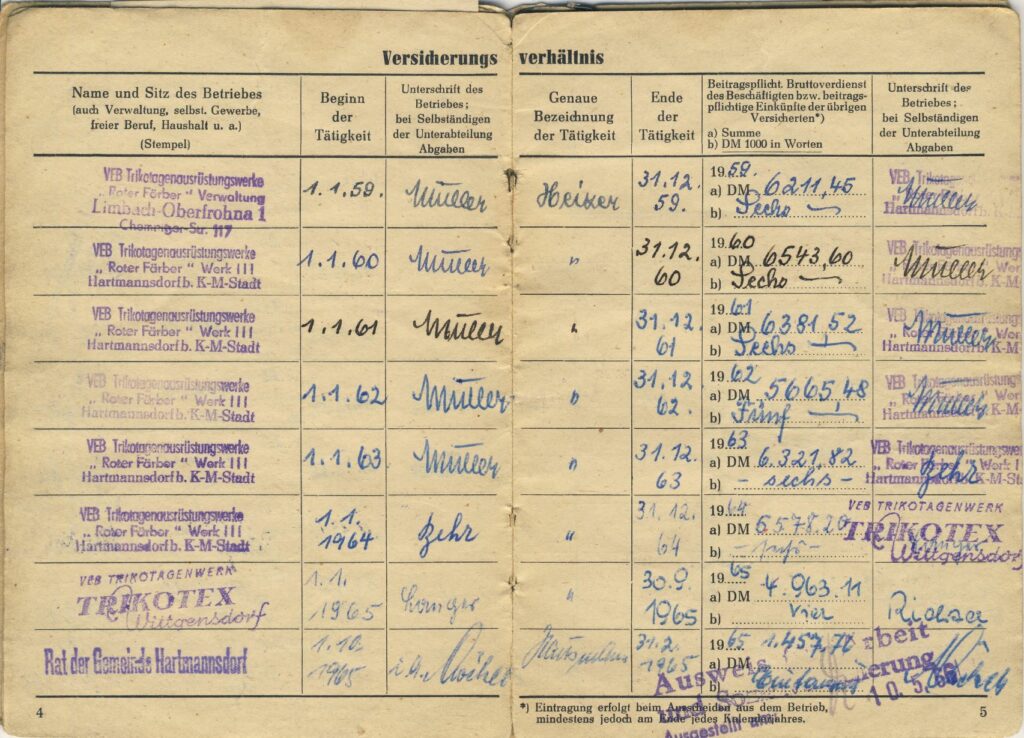 Versicherungsverhältnis
Name und Sitz des Betriebes
(auch Verwaltung, selbst. Gewerbe,
freier Beruf, Haushalt u. a.)
(Stempel)
Beginn
der
Tätigkeit
Unterschrift des
Betriebes;
bei Selbständigen
der Unterabteilung
Abgaben
Genaue
Bezeichnung
der Tätigkeit
Ende
der
Tätigkeit
Beitragspflicht. Bruttoverdienst
des Beschäftigten bzw. beitrags-
pflichtige Einkünfte der übrigen
Versicherten*)
a) Summe
b) DM 1000 in Worten
Unterschrift des
Betriebes;
bei Selbständigen
der Unterabteilung
Abgaben
VEB Trikotagenausrüstungswerke
„Roter Färber" Verwaltung
Limbach-Oberfrohna 1
Chemnitzer Str. 117
1.1.59.
Müller
Heizer
31.12.
59.
1959.
a) DM 6211,45
b) Sechs
VEB Trikotagen
Müller
VEB Trikotagenausrüstungswerke
„Roter Färber" Werk III
Hartmannsdorf b. K-M-Stadt
1.1.60
Müller
"
31.12.
60
1960
a) DM 6543,60
b) Sechs
VEB Trikotagenausrüstungs
Müller
Hartmannsdorf b. K-M
VEB Trikotagenausrüstungswerke
„Roter Färber" Werk III
Hartmannsdorf b. K-M-Stadt
1.1.61
Müller
"
31.12.
61
1961
a) DM 6381,52
b) Sechs
VEB Trikotagenausrüstungs
Müller
Hartmannsdorf b. K-M
VEB Trikotagenausrüstungswerke
„Roter Färber" Werk III
Hartmannsdorf b. K-M-Stadt
1.1.62
Müller
"
31.12
62.
1962
a) DM 5665,48
b) Fünf
VEB Trikotagenausrüstungs
Müller
Hartmannsdorf b. K-M
VEB Trikotagenausrüstungswerke
„Roter Färber" Werk III
Hartmannsdorf b. K-M-Stadt
1.1.63
Müller
"
31.12.
63
1963
a) DM 6.321,82
b) - sechs -
VEB Trikotagenausrüstungswer
„Roter Färber" Werk III
Hartmannsdorf b. K-M-St
VEB Trikotagenausrüstungswerke
„Roter Färber" Werk III
Hartmannsdorf b. K-M-Stadt
1.1.
1964
"
31.12.
64
1964
a) DM 6578.20
b) - sechs -
VEB TRIKOTAGENWERK
TRIKOTEX
Wittgensdorf
VEB TRIKOTAGENWERK
TRIKOTEX
Wittgensdorf
1.1.
1965
Langer
"
30.9.
1965
1965
a) DM 4.963.11
b) vier
Rat der Gemeinde Hartmannsdorf
1.10.
1965
i.A.
31.2.
1965
1965
a) DM 1.457,70
b)
Ausweis
Arbeit
und
Ausgestellt am:
10.5.66
*) Eintragung erfolgt beim Ausscheiden aus dem Betrieb,
mindestens jedoch am Ende jedes Kalenderjahres.
4
5